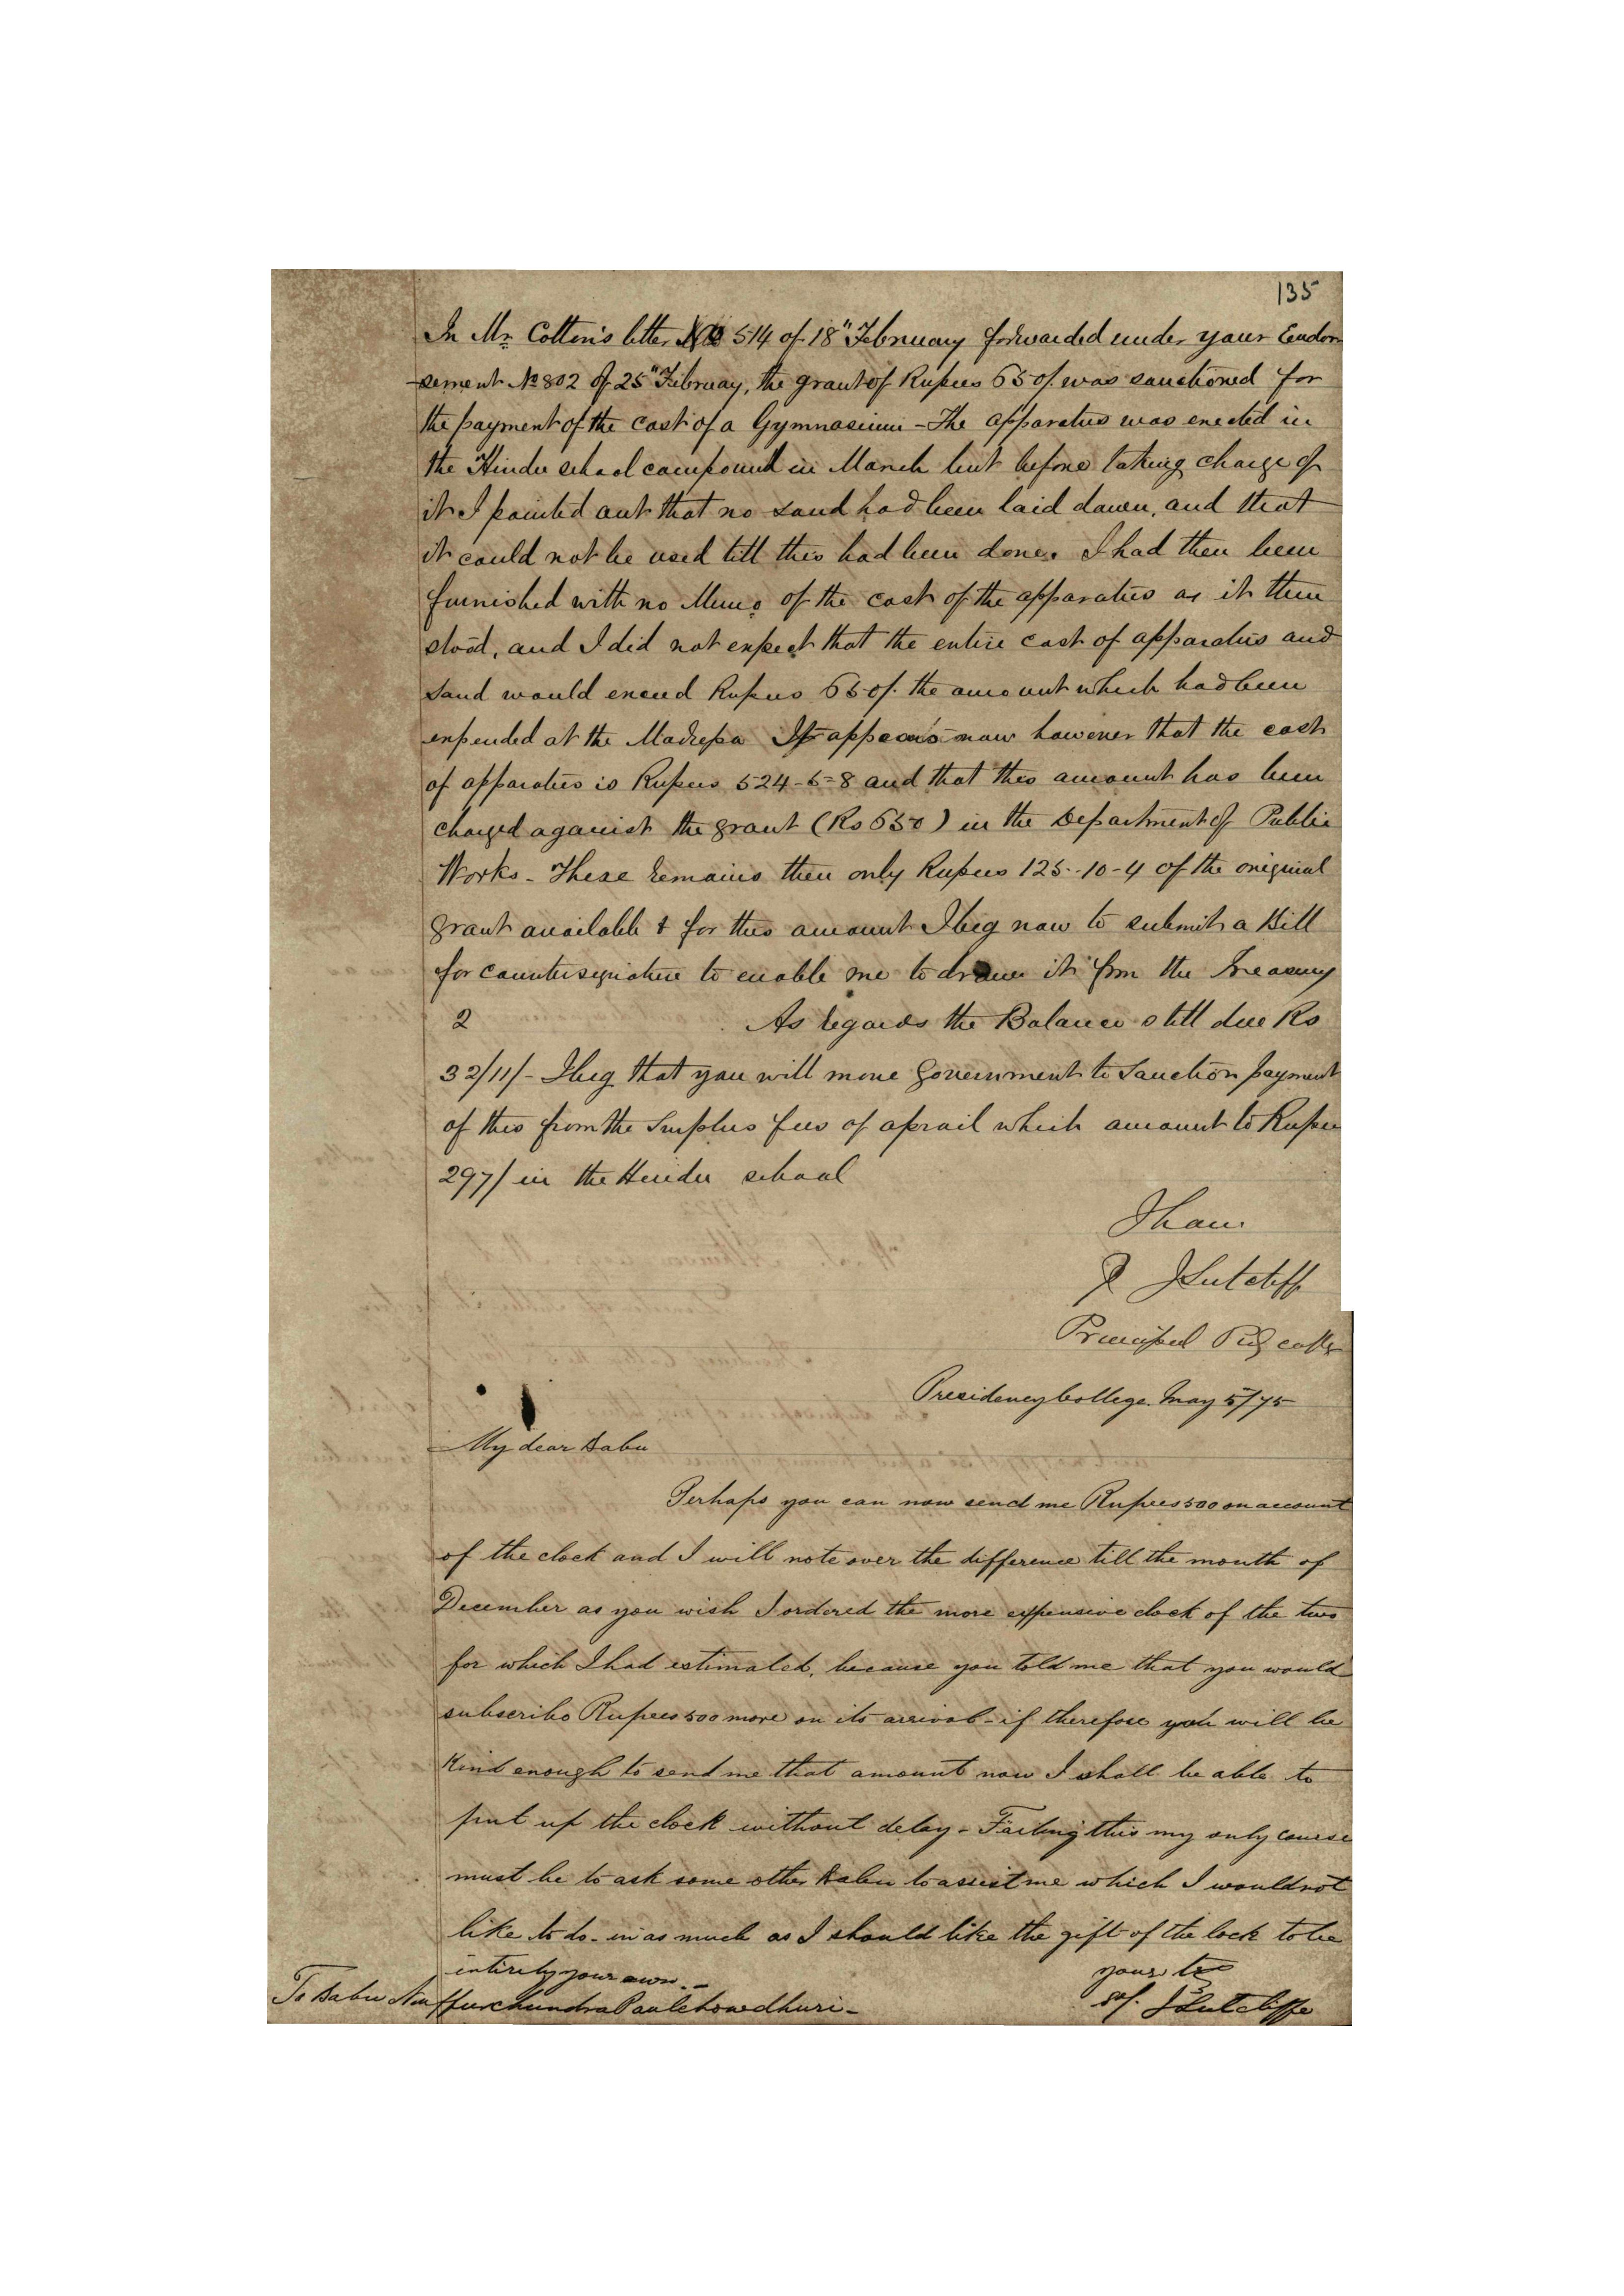 135
In Mr. Cotton's letter No 514 of 18" February forwarded under your Endor
-sement No 802 of 25" February, the grant of Rupees 650/. was sanctioned for
the payment of the cost of a Gymnasium - The apparatus was erected in
the Hindu school compound in March but before taking charge of
it I pointed out that no sand had been laid down, and that
it could not be used till this had been done. I had then been
furnished with no Memo of the cost of the apparatus as it then
stood, and I did not expect that the entire cost of apparatus and
Sand would exceed Rupees 650/. the amount which had been
expended at the Madrepa It appears now however that the cost
of apparatus is Rupees 524-5-8 and that this amount has been
charged against the grant (Rs 650) in the Department of Public
Works - There remains then only Rupees 125-10-4 of the original
grant available & for this amount I beg now to submit a Bill
for countersignature to enable me to draw it from the Treasury
2 As regards the Balance still due Rs
32/11/- I beg that you will move Government to Sanction payment
of this from the Surplus fees of aprail which amount to Rupee
297/ in the Hindu school
I have
J Sutcliff
Principal
Presidency College. May 5/75
My dear Babu
Perhaps you can now send me Rupees 500 on account
of the clock and I will note over the difference till the month of
December as you wish I ordered the more expensive clock of the two
for which I had estimated, because you told me that you would
subscribe Rupees 500 more on its arrival - if therefore you will be
Kind enough to send me that amount now I shall be able to
put up the clock without delay - Failing this my only course
must be to ask some other Babu to assist me which I would not
like to do - in as much as I should like the gift of the lock to be
entirely your own. -
yours
To Babu Nuffurchundra Paulchowdhuri -
Sd/. J Sutcliffe